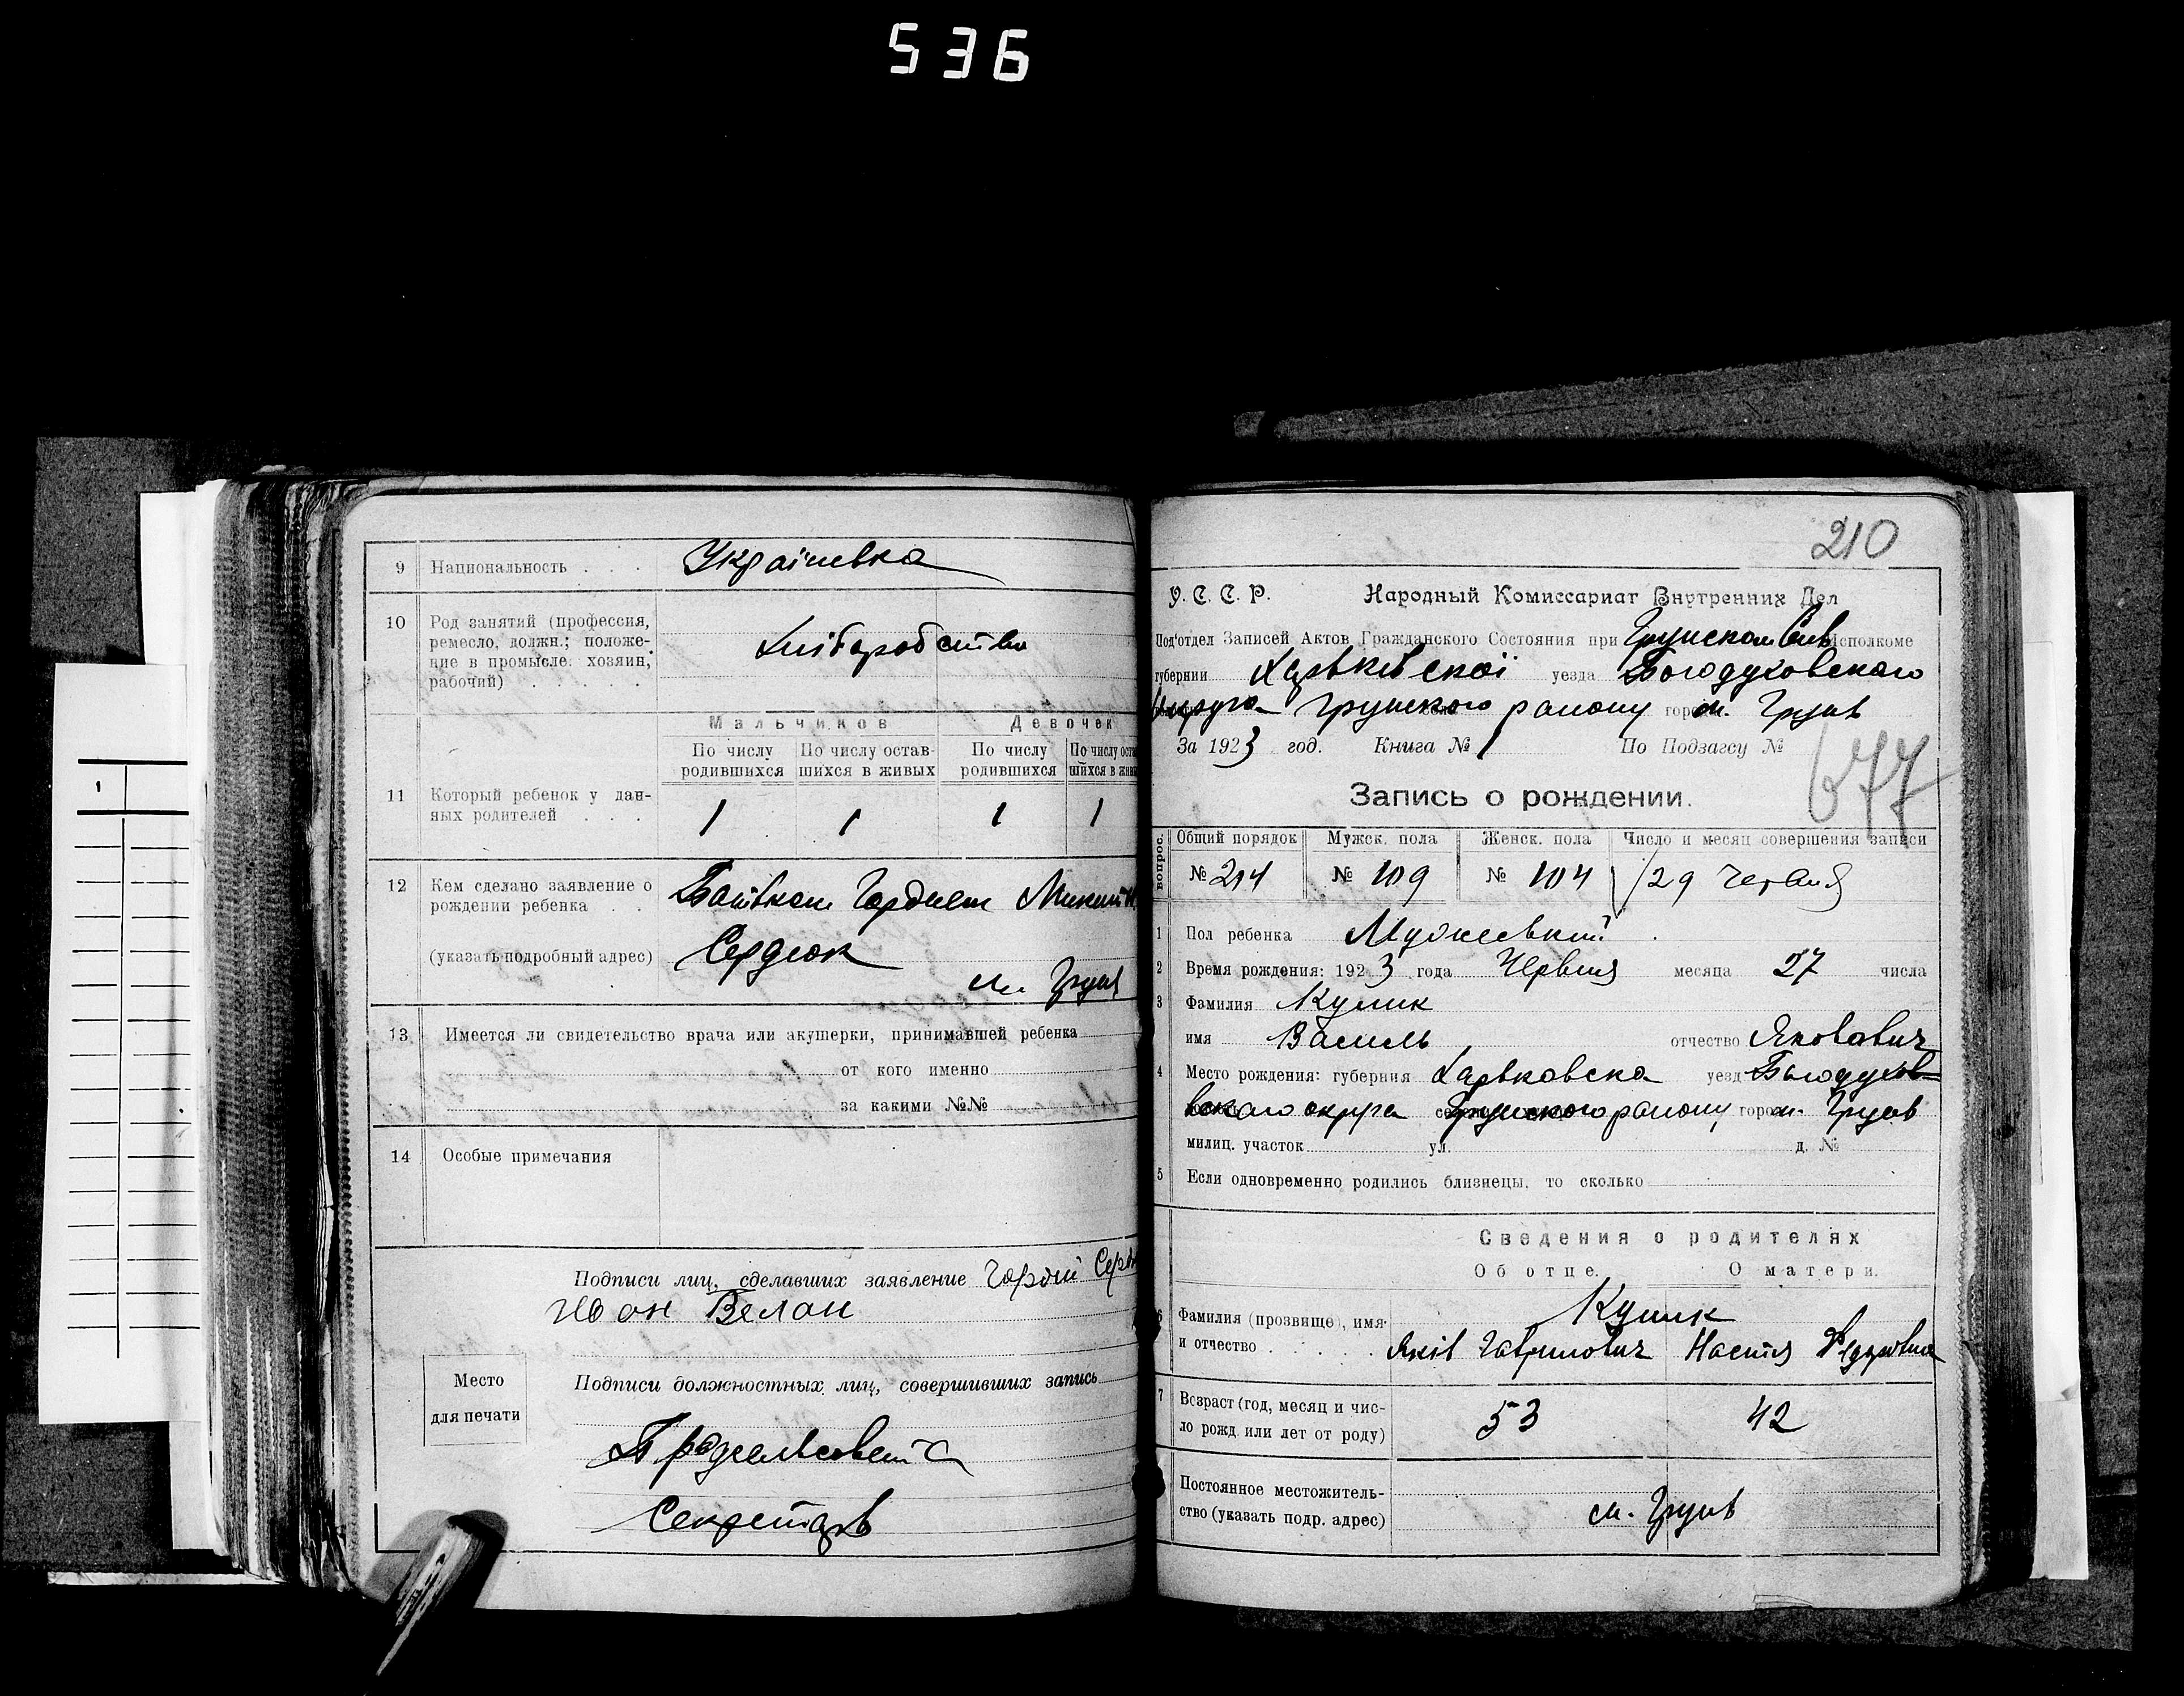 536
9 Национальность . . . Українська
10 Род занятий (профессия,
ремесло, должн.; положе-
ние в промысле: хозяин,
рабочий) . . . .
Хліборобство
Мальчиков Девочек
По числу родившихся По числу остав-шихся в живых По числу родившихся По числу оста шихся в живы
11 Который ребенок у дан-
ных родителей . . . 1 1 1 1
12 Кем сделано заявление о
рождении ребенка . .
(указать подробный адрес)
Батьком Гордием Микит
Сердюк
м. Грунь
13 Имеется ли свидетельство врача или акушерки, принимавшей ребенка
от кого именно
за какими №№
14 Особые примечания
Подписи лиц, сделавших заявление Гордій Серд
Велан
Место
для печати
Подписи должностных лиц, совершивших запись
Предсельсовета
Секретарь
210
У. С. С. Р. Народный Комиссариат Внутренних Дел
Под'отдел Записей Актов Гражданского Состояния при Грунском Исполкоме
губернии Харьківської уезда Богодуховского
округа Грунского району город м. Грунь
За 1923 год. Книга № 1 По Подзагсу №
677
Запись о рождении.
вопрос. Общий порядок Мужск. пола Женск. пола Число и месяц совершения записи
№ 214 № 109 № 104 29 Червня
1 Пол ребенка Мужеський
2 Время рождения: 1923 года Червня месяца 27 числа
3 Фамилия Кулик
имя Василь отчество Яковович
4 Место рождения: губерния Харьковска уезд Богодухов=
вского округа Грунского району город м. Грунь
милиц. участок ул. д. №
5 Если одновременно родились близнецы, то сколько
Сведения о родителях
Об отце. О матери.
6 Фамилия (прозвище), имя
и отчество . . . . .
Кулик
Яків Гаврилович Настя Федоровна
7 Возраст (год, месяц и чис-
ло рожд. или лет от роду) 53 42
Постоянное местожитель-
ство (указать подр. адрес) м. Грунь